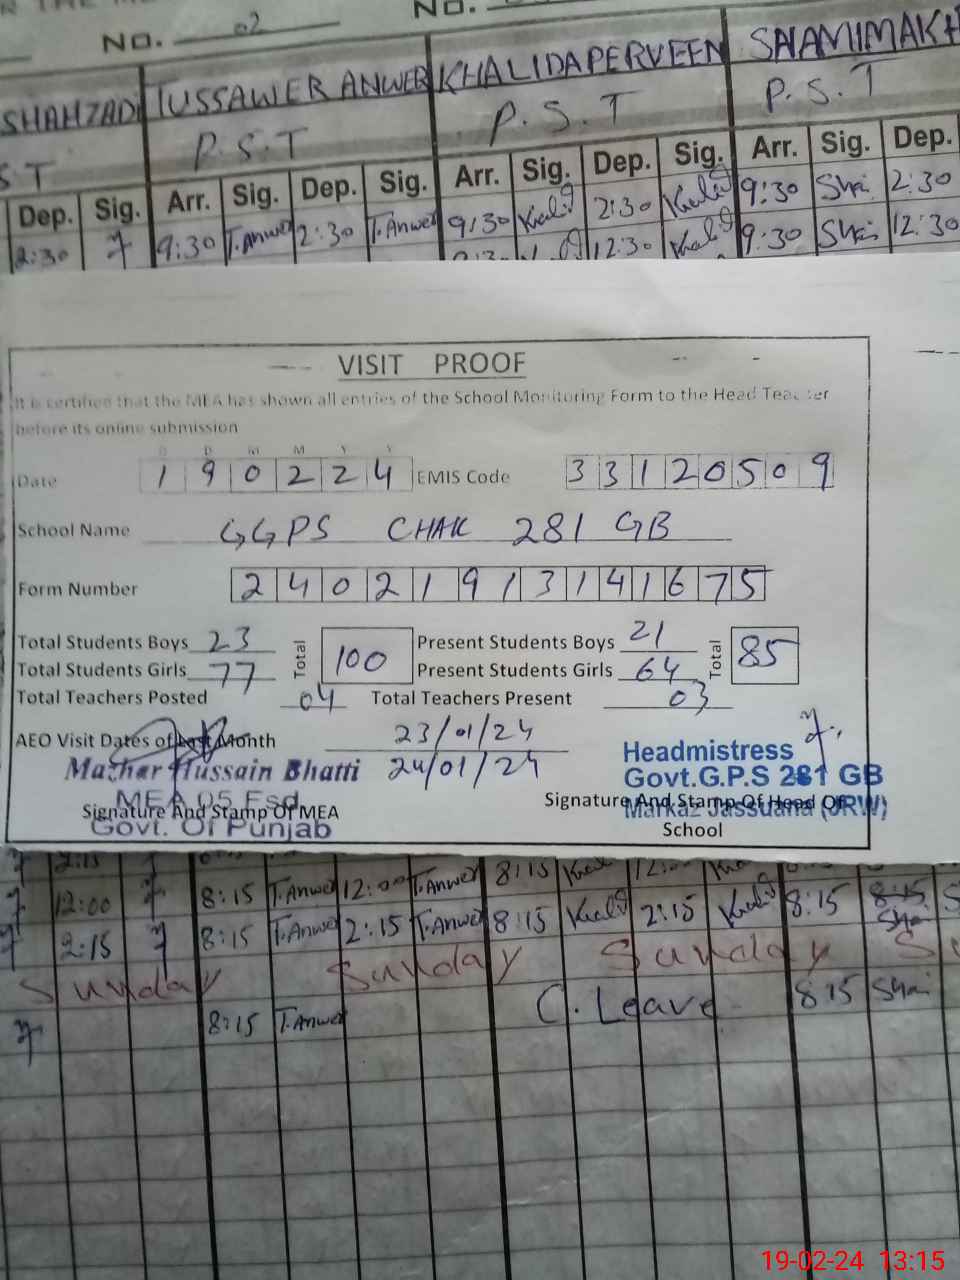 No. 02 No.
SHAHZADI TUSSAWER ANWER KHALIDA PERVEEN
S T P.S.T P.S.T P.S.T
Dep. Sig. Arr. Sig. Dep. Sig. Arr. Sig. Dep. Sig. Arr. Sig. Dep.
2:30 9:30 T.Anwer 2:30 T.Anwer 9:30 Khalid 2:30 Khalid 9:30 Sha 2:30
12:30 Khalid 9:30 Sha 12:30
VISIT PROOF
It is certified that the MEA has shown all entries of the School Monitoring Form to the Head Teacher
before its online submission
D D M M Y Y
Date 190224 EMIS Code 33120509
School Name GGPS CHAK 281 GB
Form Number 24021913141675
Total Students Boys 23 Total 100 Present Students Boys 21 Total 85
Total Students Girls 77 Present Students Girls 64
Total Teachers Posted 04 Total Teachers Present 03
AEO Visit Dates of Last Month 23/01/24
24/01/24
Mazhar Hussain Bhatti
MEA 05 Fsd
Signature And Stamp Of MEA
Govt. Of Punjab
Headmistress
Govt.G.P.S 281 GB
Signature And Stamp Of Head Of
Markaz Jassuana (JRW)
School
2:15 8:15 12:
12:00 8:15 T.Anwer 12:00 T.Anwer 8:15 Khalid 2:15 Khalid 8:15 8:15 Sha
2:15 8:15 T.Anwer 2:15 T.Anwer
Sunday Sunday Sunday
8:15 T.Anwer C. Leave 8 15 Sha
19-02-24 13:15